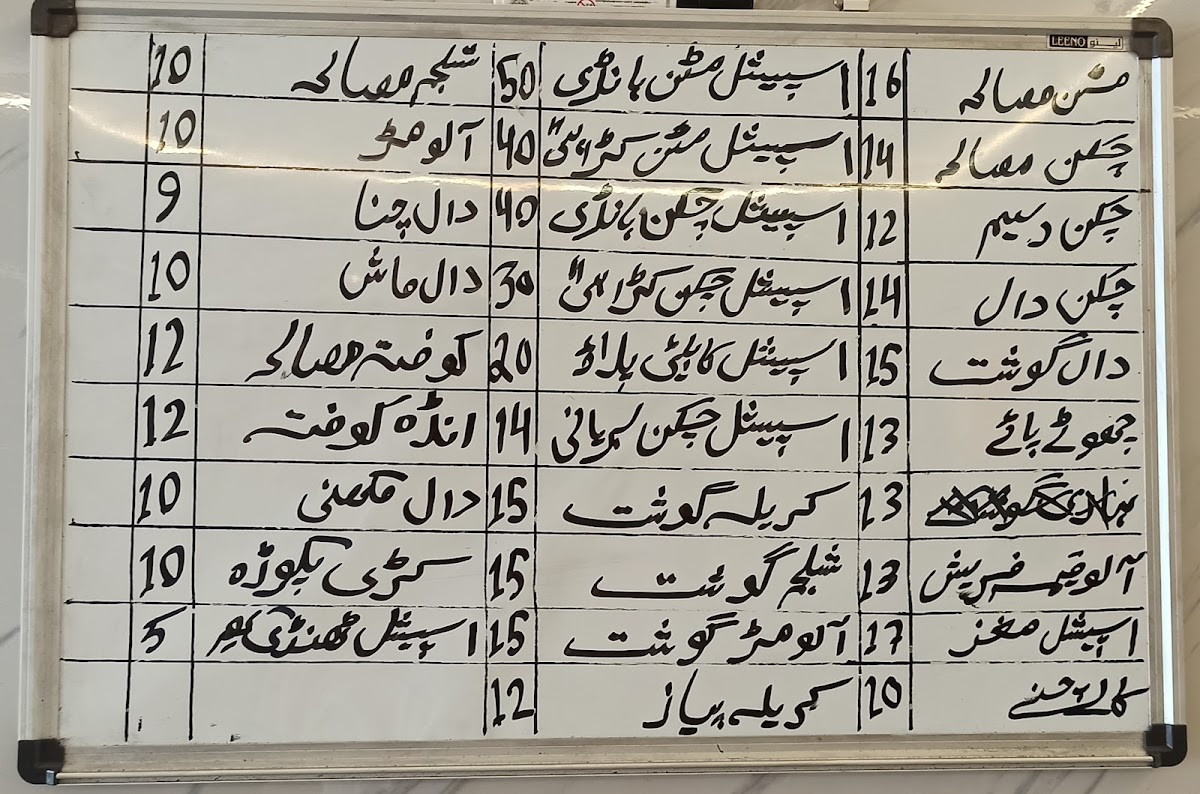 LEENO لينو
مٹن مصالحہ 16 اسپیشل مٹن ہانڈی 50 شلجم مصالحہ 10
چکن مصالحہ 14 اسپیشل مٹن کڑاہی 40 آلو مٹر 10
چکن دسیم 12 اسپیشل چکن ہانڈی 40 دال چنا 9
چکن دال 14 اسپیشل چکن کڑاہی 30 دال ماش 10
دال گوشت 15 اسپیشل کابلی پلاؤ 20 کوفتہ مصالحہ 12
چھوٹے پائے 13 اسپیشل چکن بریانی 14 انڈہ کوفتہ 12
13 کریلہ گوشت 15 دال مکھنی 10
آلو قیمہ فریش 13 شلجم گوشت 15 کڑی پکوڑہ 10
اسپیشل مغز 17 آلو مٹر گوشت 15 اسپیشل ٹھنڈی کھیر 5
کالے چنے 10 کریلہ پیاز 12